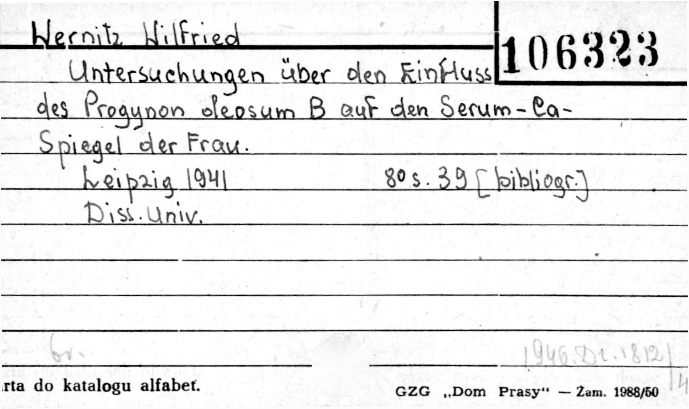 Wernitz Wilfried
106323
Untersuchungen über den Einfluss
des Progynon oleosum B auf den Serum-Ca-
Spiegel der Frau.
Leipzig 1941 8° s. 39 [bibliogr.]
Diss. Univ.
br. 1946.Dr.1812/4
rta do katalogu alfabet. GZG „Dom Prasy“ — Żam. 1988/50